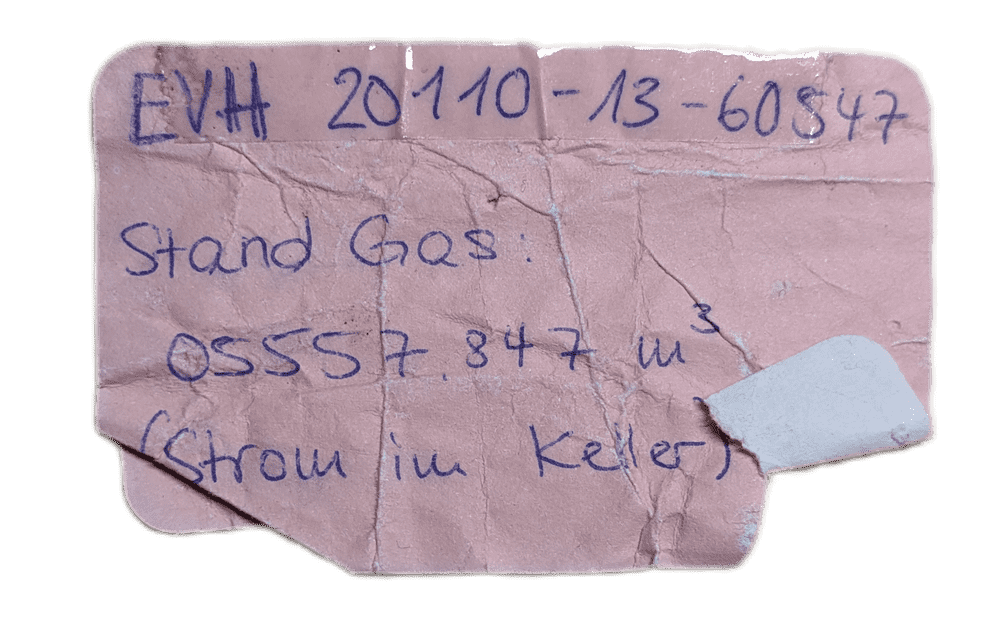 EVH 20110-13-60847
Stand Gas:
05557.847 m³
(Strom im Keller)